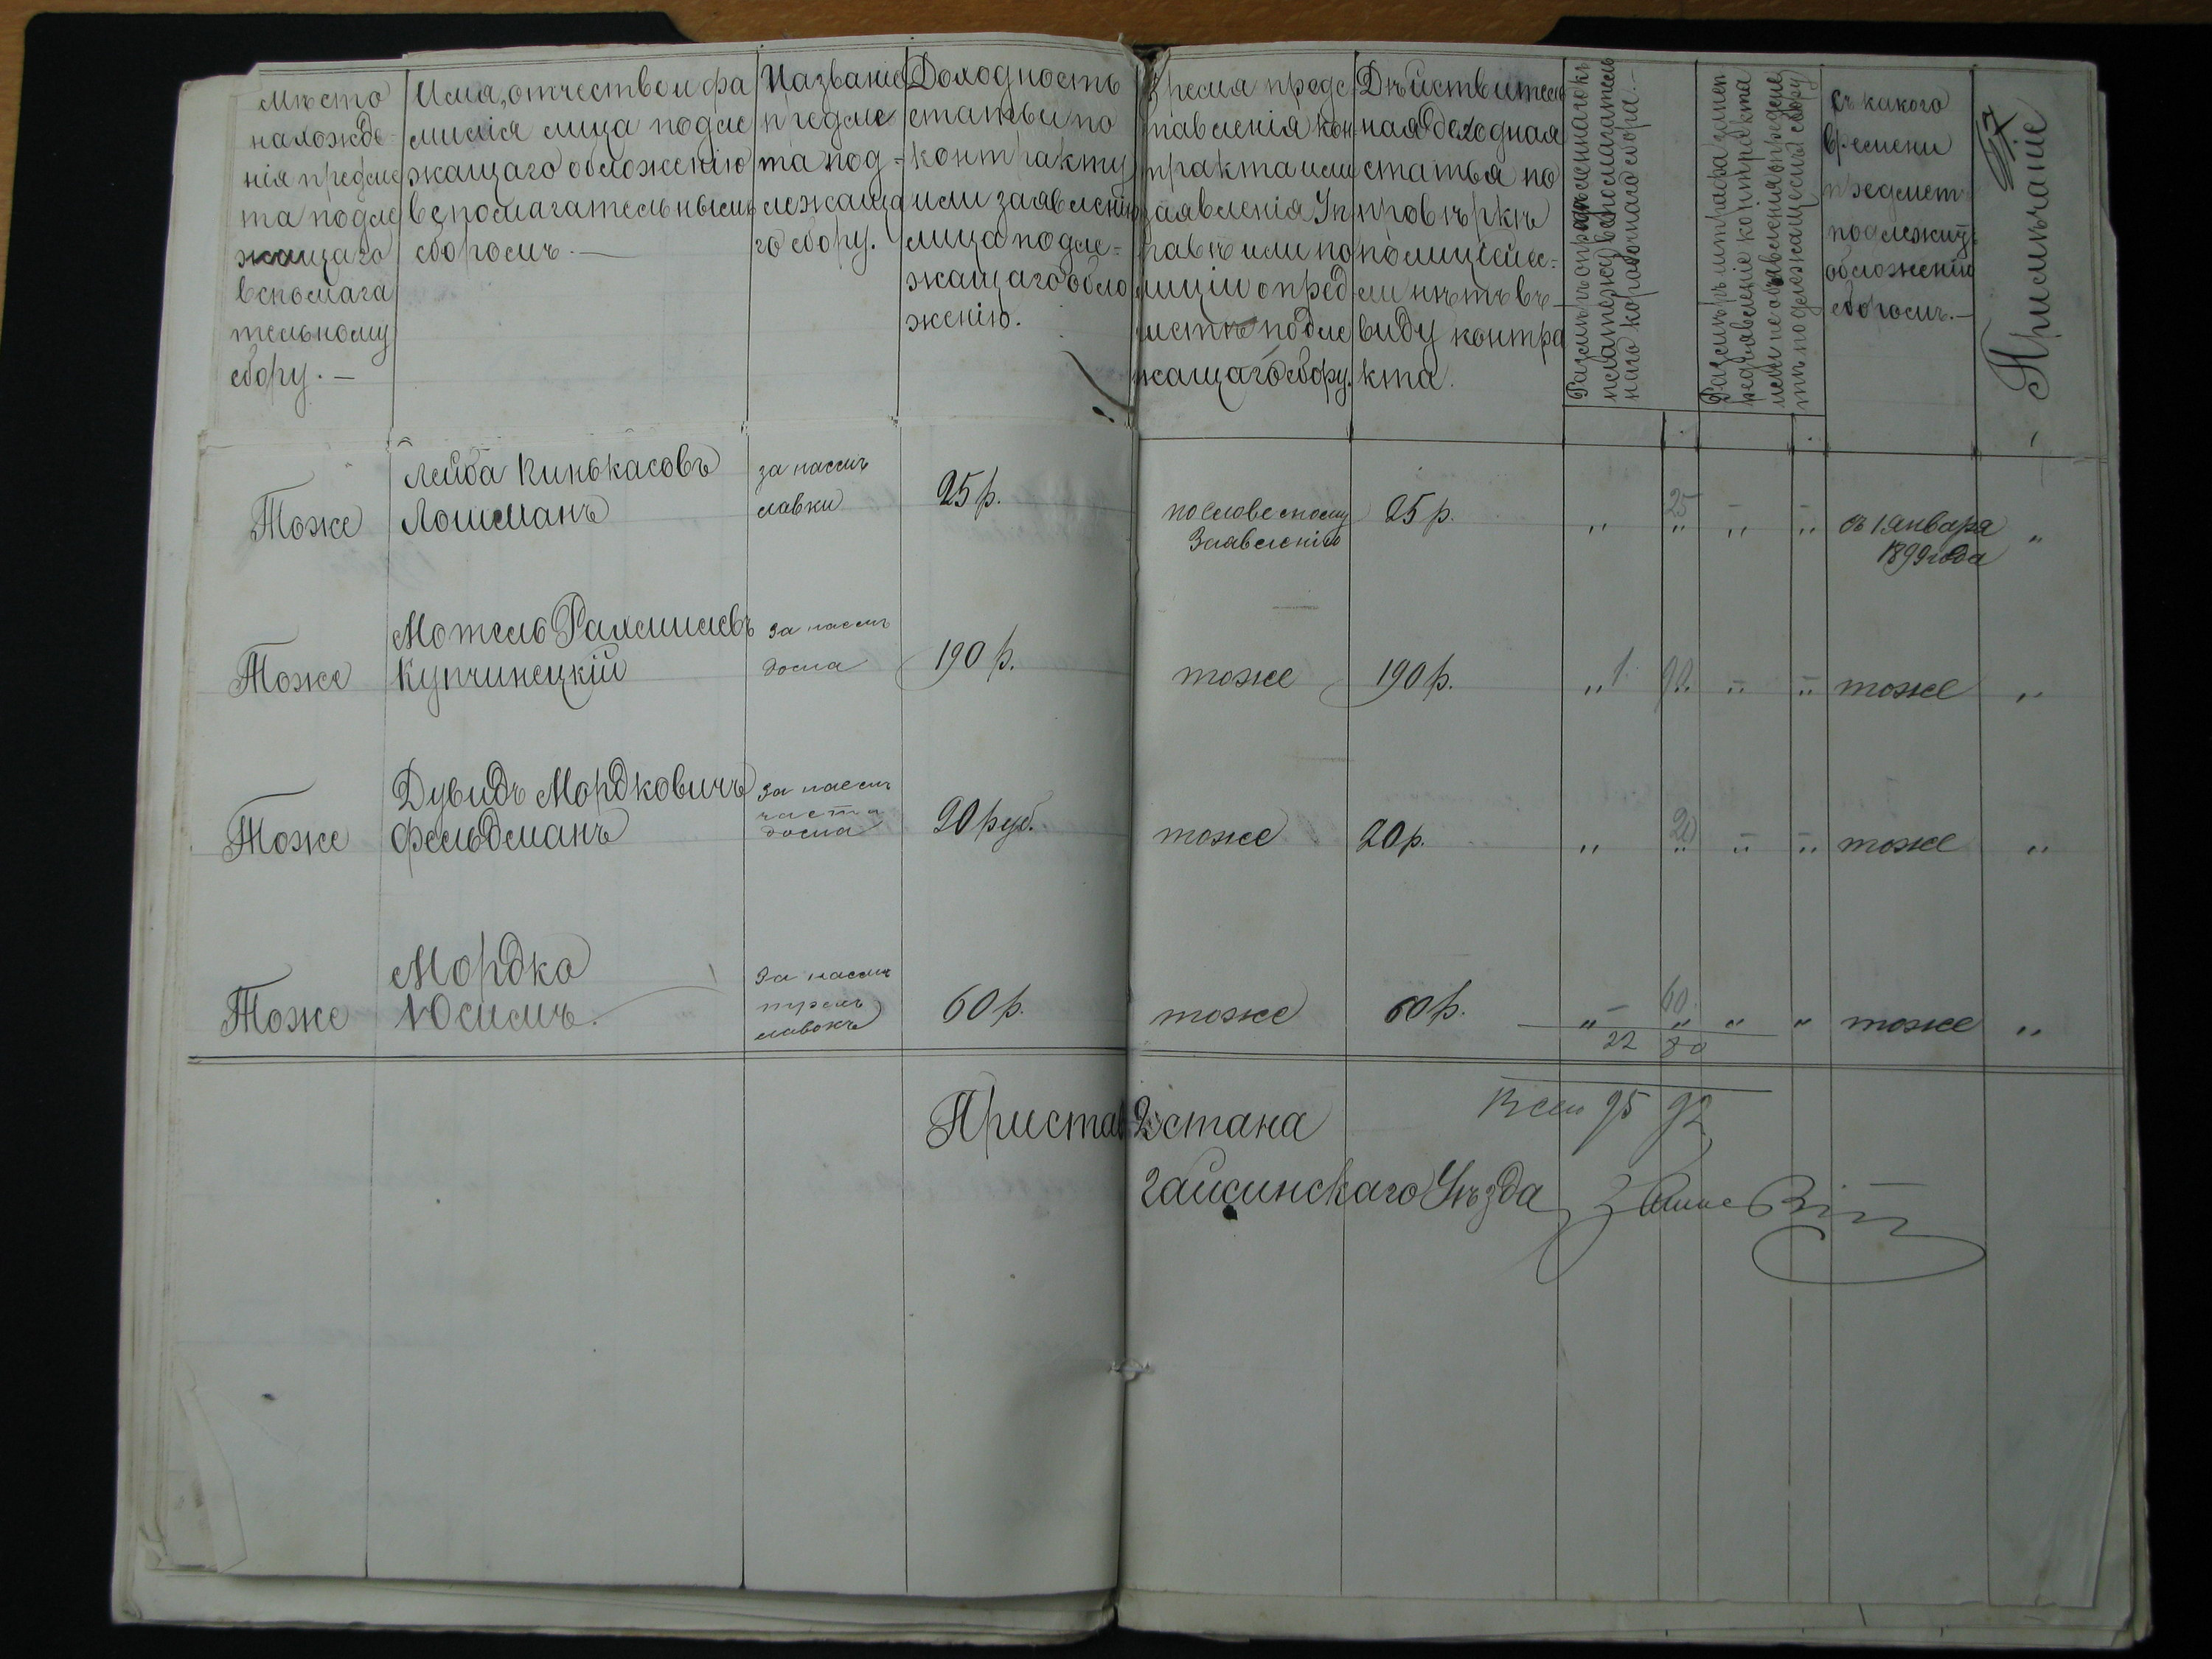 Мѣсто
нахожде-
нія предме
та подле
жащаго
вспомага
тельному
сбору. —
Имя, отчество и фа
милія лица подле
жащаго обложенію
вспомагательнымъ
сборомъ. —
Названіе
предме
та под-
лежаща
го сбору.
Доходность
статьи по
контракту
или заявленію
лица подле-
жащаго обло
женію.
Время предс
тавленія кон
тракта или
заявленія Уп
равѣ или по
лиціи о пред
метѣ подле
жащаго сбору.
Дѣйствитель
ная доходная
статья по
провѣркѣ
полиціей е-
сли нѣтъ въ
виду контра
кта.
наго коробочнаго сбора. —
съ какого
времени
предметъ
подлежитъ
обложенію
сборомъ. —
Примѣчаніе
Тоже
Лейба Пинькасовъ
Лошманъ
за наемъ
лавки
25 р.
по словесному
Заявленію
25 р.
" 25 " " "
съ 1 Января
1899 года
"
Тоже
Мотель Рахмилевъ
Купчинецкій
За наемъ
дома
190 р.
тоже
190 р.
" 1. 90. " "
тоже
"
Тоже
Дувидъ Мордковичъ
Фельдманъ
За наемъ
части
дома
20 руб.
тоже
20 р.
" 20 " " "
тоже
"
Тоже
Мордко
Юсимъ.
За наемъ
трехъ
лавокъ
60 р.
тоже
60 р.
" 60. " " "
тоже
"
22 80
Всего 95 92
Приставъ 2 стана
Гайсинскаго Уѣзда